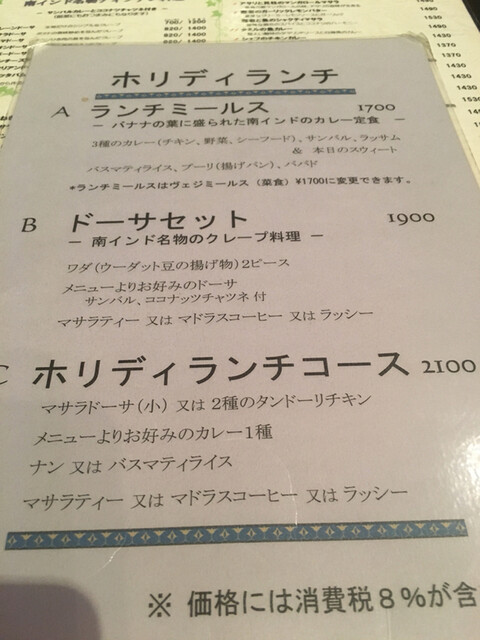 ホリディランチ
A ランチミールス 1700
― バナナの葉に盛られた南インドのカレー定食 ―
3種のカレー(チキン、野菜、シーフード)、サンバル、ラッサム
& 本日のスウィート
バスマティライス、プーリ(揚げパン)、パパド
*ランチミールスはヴェジミールス(菜食)¥1700に変更できます。
B ドーサセット 1900
― 南インド名物のクレープ料理 ―
ワダ(ウーダット豆の揚げ物)2ピース
メニューよりお好みのドーサ
サンバル、ココナッツチャツネ 付
マサラティー 又は マドラスコーヒー 又は ラッシー
C ホリディランチコース 2100
マサラドーサ(小) 又は 2種のタンドーリチキン
メニューよりお好みのカレー1種
ナン 又は バスマティライス
マサラティー 又は マドラスコーヒー 又は ラッシー
※ 価格には消費税8%が含